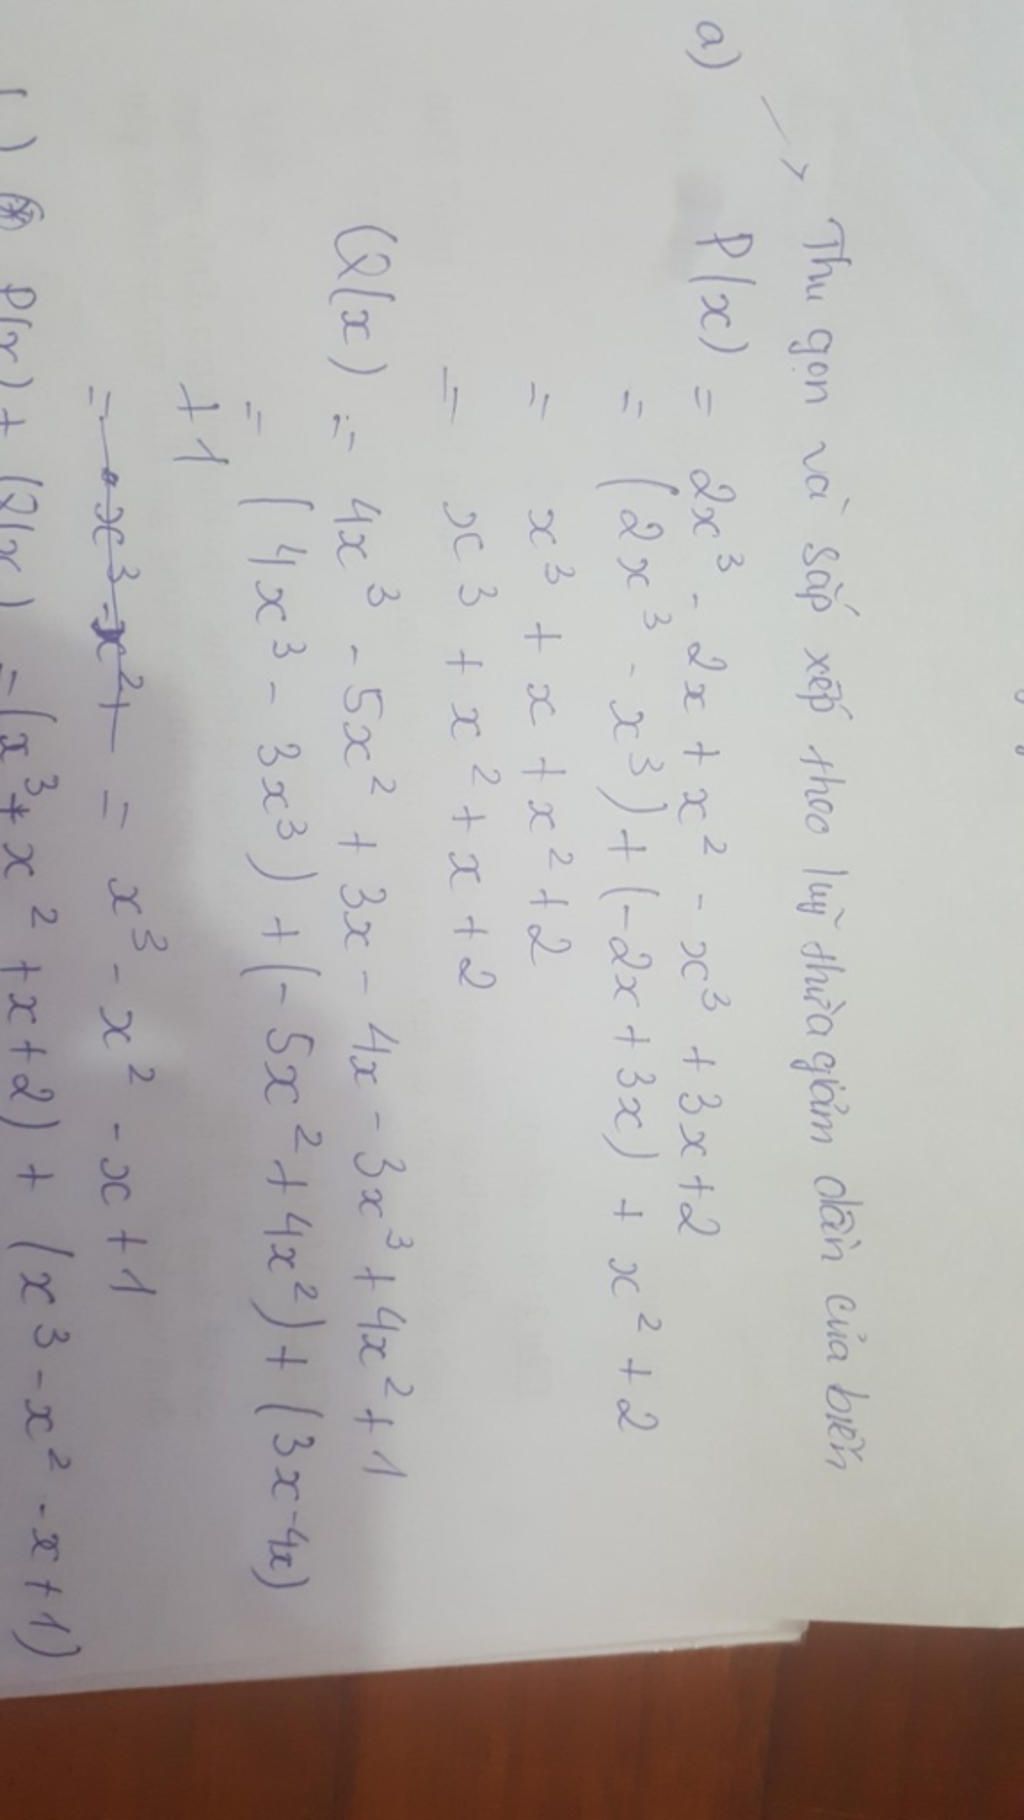 → Thu gọn và sắp xếp theo luỹ thừa giảm dần của biến
a) P(x) = 2x³ - 2x + x² - x³ + 3x + 2
= (2x³ - x³) + (-2x + 3x) + x² + 2
= x³ + x + x² + 2
= x³ + x² + x + 2
Q(x) = 4x³ - 5x² + 3x - 4x - 3x³ + 4x² + 1
= (4x³ - 3x³) + (-5x² + 4x²) + (3x - 4x)
+ 1
= x³ - x² + = x³ - x² - x + 1
P(x) + Q(x) = (x³ + x² + x + 2) + (x³ - x² - x + 1)